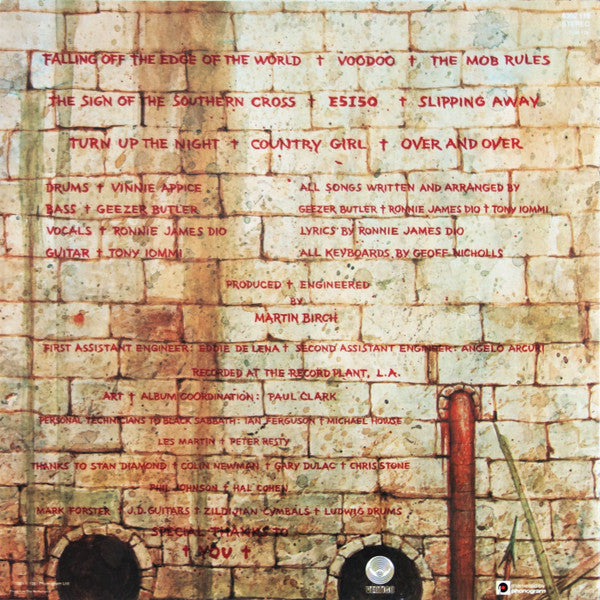 6302 119
STEREO
FALLING OFF THE EDGE OF THE WORLD † VOODOO † THE MOB RULES
THE SIGN OF THE SOUTHERN CROSS † E5150 † SLIPPING AWAY
TURN UP THE NIGHT † COUNTRY GIRL † OVER AND OVER
DRUMS † VINNIE APPICE
BASS † GEEZER BUTLER
VOCALS † RONNIE JAMES DIO
GUITAR † TONY IOMMI
ALL SONGS WRITTEN AND ARRANGED BY
GEEZER BUTLER † RONNIE JAMES DIO † TONY IOMMI
LYRICS BY RONNIE JAMES DIO
ALL KEYBOARDS BY GEOFF NICHOLLS
PRODUCED † ENGINEERED
BY
MARTIN BIRCH
FIRST ASSISTANT ENGINEER: EDDIE DE LENA † SECOND ASSISTANT ENGINEER: ANGELO ARCURI
RECORDED AT THE RECORD PLANT, L.A.
ART † ALBUM COORDINATION: PAUL CLARK
PERSONAL TECHNICIANS TO BLACK SABBATH: IAN FERGUSON † MICHAEL HOUSE
LES MARTIN † PETER RESTY
THANKS TO STAN DIAMOND † COLIN NEWMAN † GARY DULAC † CHRIS STONE
PHIL JOHNSON † HAL COHEN
MARK FORSTER † J.D. GUITARS † ZILDJIAN CYMBALS † LUDWIG DRUMS
SPECIAL THANKS TO
† YOU †
Phonogram Ltd
VERTIGO
marketed by
phonogram